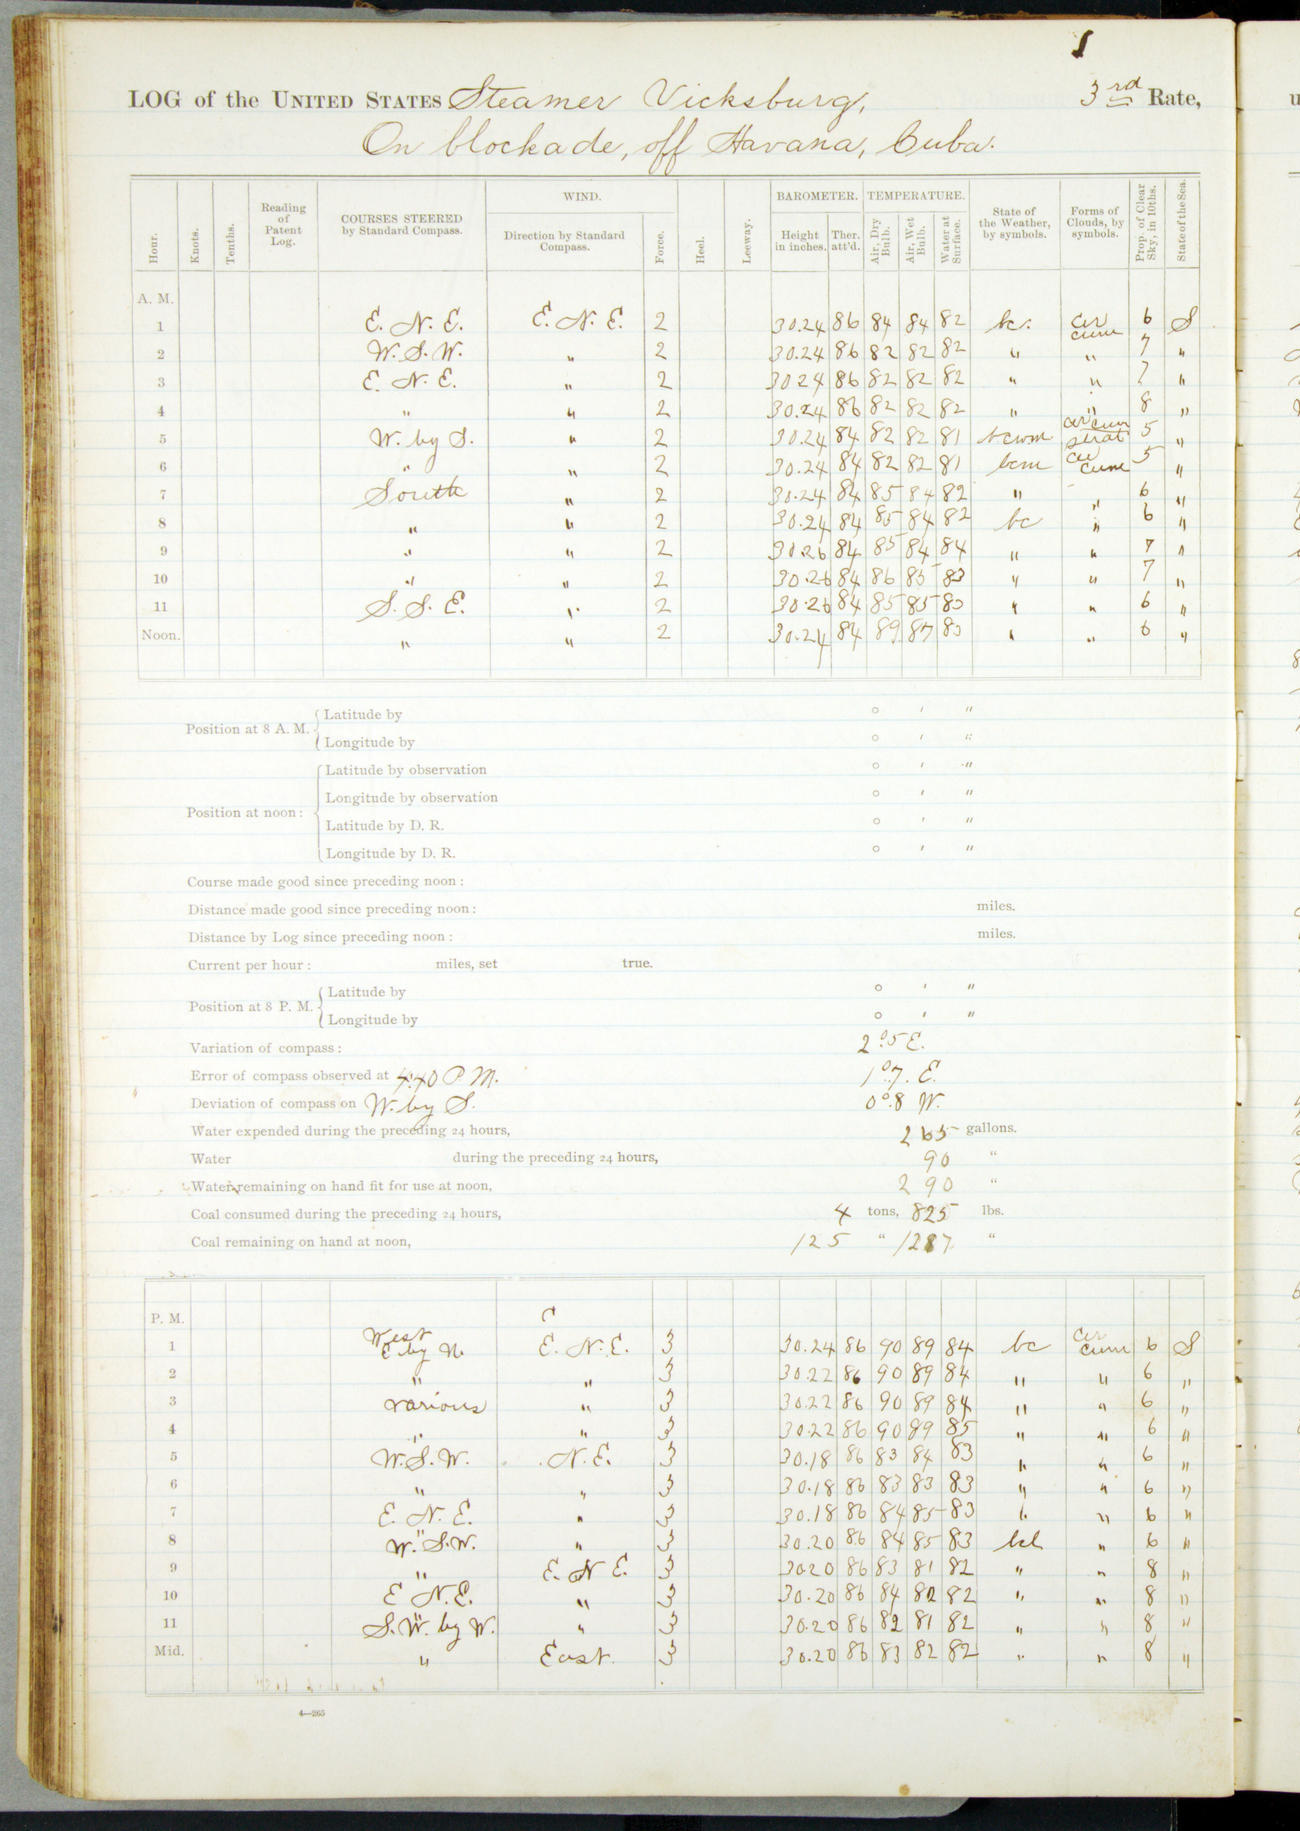 LOG of the UNITED STATES Steamer Vicksburg, 3rd Rate,
On blockade, off Havana, Cuba.
Hour. Knots. Tenths. Reading of Patent Log. COURSES STEERED by Standard Compass. WIND. Direction by Standard Compass. Force. Heel. Leeway. BAROMETER. Height in inches. Ther. att'd. TEMPERATURE. Air, Dry Bulb. Air, Wet Bulb. Water at Surface. State of the Weather, by symbols. Forms of Clouds, by symbols. Prop. of Clear Sky, in 10ths. State of the Sea.
A. M.
1 E. N. E. E. N. E. 2 30.24 86 84 84 82 bc. cir cum 6 S
2 W. S. W. " 2 30.24 86 82 82 82 " " 7 "
3 E. N. E. " 2 30 24 86 82 82 82 " " 7 "
4 " " 2 30.24 86 82 82 82 " " 8 "
5 W. by S. " 2 30.24 84 82 82 81 bcwm cir cum strat 5 "
6 " " 2 30.24 84 82 82 81 bcm cir cum 5 "
7 South " 2 30.24 84 85 84 82 " " 6 "
8 " " 2 30.24 84 85 84 82 bc " 6 "
9 " " 2 30.26 84 85 84 84 " " 7 "
10 " " 2 30.26 84 86 85 83 " " 7 "
11 S. S. E. " 2 30.26 84 85 85 83 " " 6 "
Noon. " " 2 30.24 84 89 87 83 " " 6 "
Position at 8 A. M. Latitude by ° ' "
Longitude by ° ' "
Position at noon: Latitude by observation ° ' "
Longitude by observation ° ' "
Latitude by D. R. ° ' "
Longitude by D. R. ° ' "
Course made good since preceding noon:
Distance made good since preceding noon: miles.
Distance by Log since preceding noon: miles.
Current per hour: miles, set true.
Position at 8 P. M. Latitude by ° ' "
Longitude by ° ' "
Variation of compass: 2°.5 E.
Error of compass observed at 4.40 P. M. 1°.7. E.
Deviation of compass on W. by S. 0°.8 W.
Water expended during the preceding 24 hours, 265 gallons.
Water during the preceding 24 hours, 90 "
Water remaining on hand fit for use at noon, 290 "
Coal consumed during the preceding 24 hours, 4 tons, 825 lbs.
Coal remaining on hand at noon, 125 " 1287 "
P. M.
1 West E by N. E. N. E. 3 30.24 86 90 89 84 bc cir cum 6 S
2 " " 3 30.22 86 90 89 84 " " 6 "
3 various " 3 30.22 86 90 89 84 " " 6 "
4 " " 3 30.22 86 90 89 85 " " 6 "
5 W. S. W. N. E. 3 30.18 86 83 84 83 " " 6 "
6 " " 3 30.18 86 83 83 83 " " 6 "
7 E. N. E. " 3 30.18 86 84 85 83 " " 6 "
8 W. S. W. " 3 30.20 86 84 85 83 bcl " 6 "
9 " E. N E. 3 30 20 86 83 81 82 " " 8 "
10 E N. E. " 3 30.20 86 84 82 82 " " 8 "
11 S. W. by W. " 3 30.20 86 82 81 82 " " 8 "
Mid. " East. 3 30.20 86 83 82 82 " " 8 "
4—265